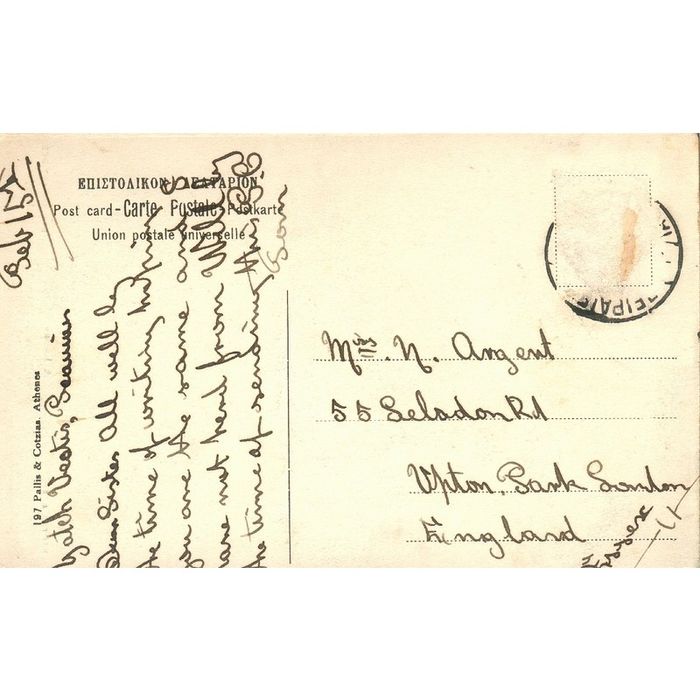 ΕΠΙΣΤΟΛΙΚΟΝ ΔΕΛΤΑΡΙΟΝ
Post card-Carte Postale-Postkarte
Union postale universelle
197 Pallis & Cotzias Athenes
Feb 15
Yatch Vectis,
Dear Sister All well by
the time of writing hoping
you are the same and
have not herd from
the time of sending this
ΠΕΙΡΑΙΕ
Mrs N. Argent
55 Selsdon Rd
Upton Park London
England
Essex